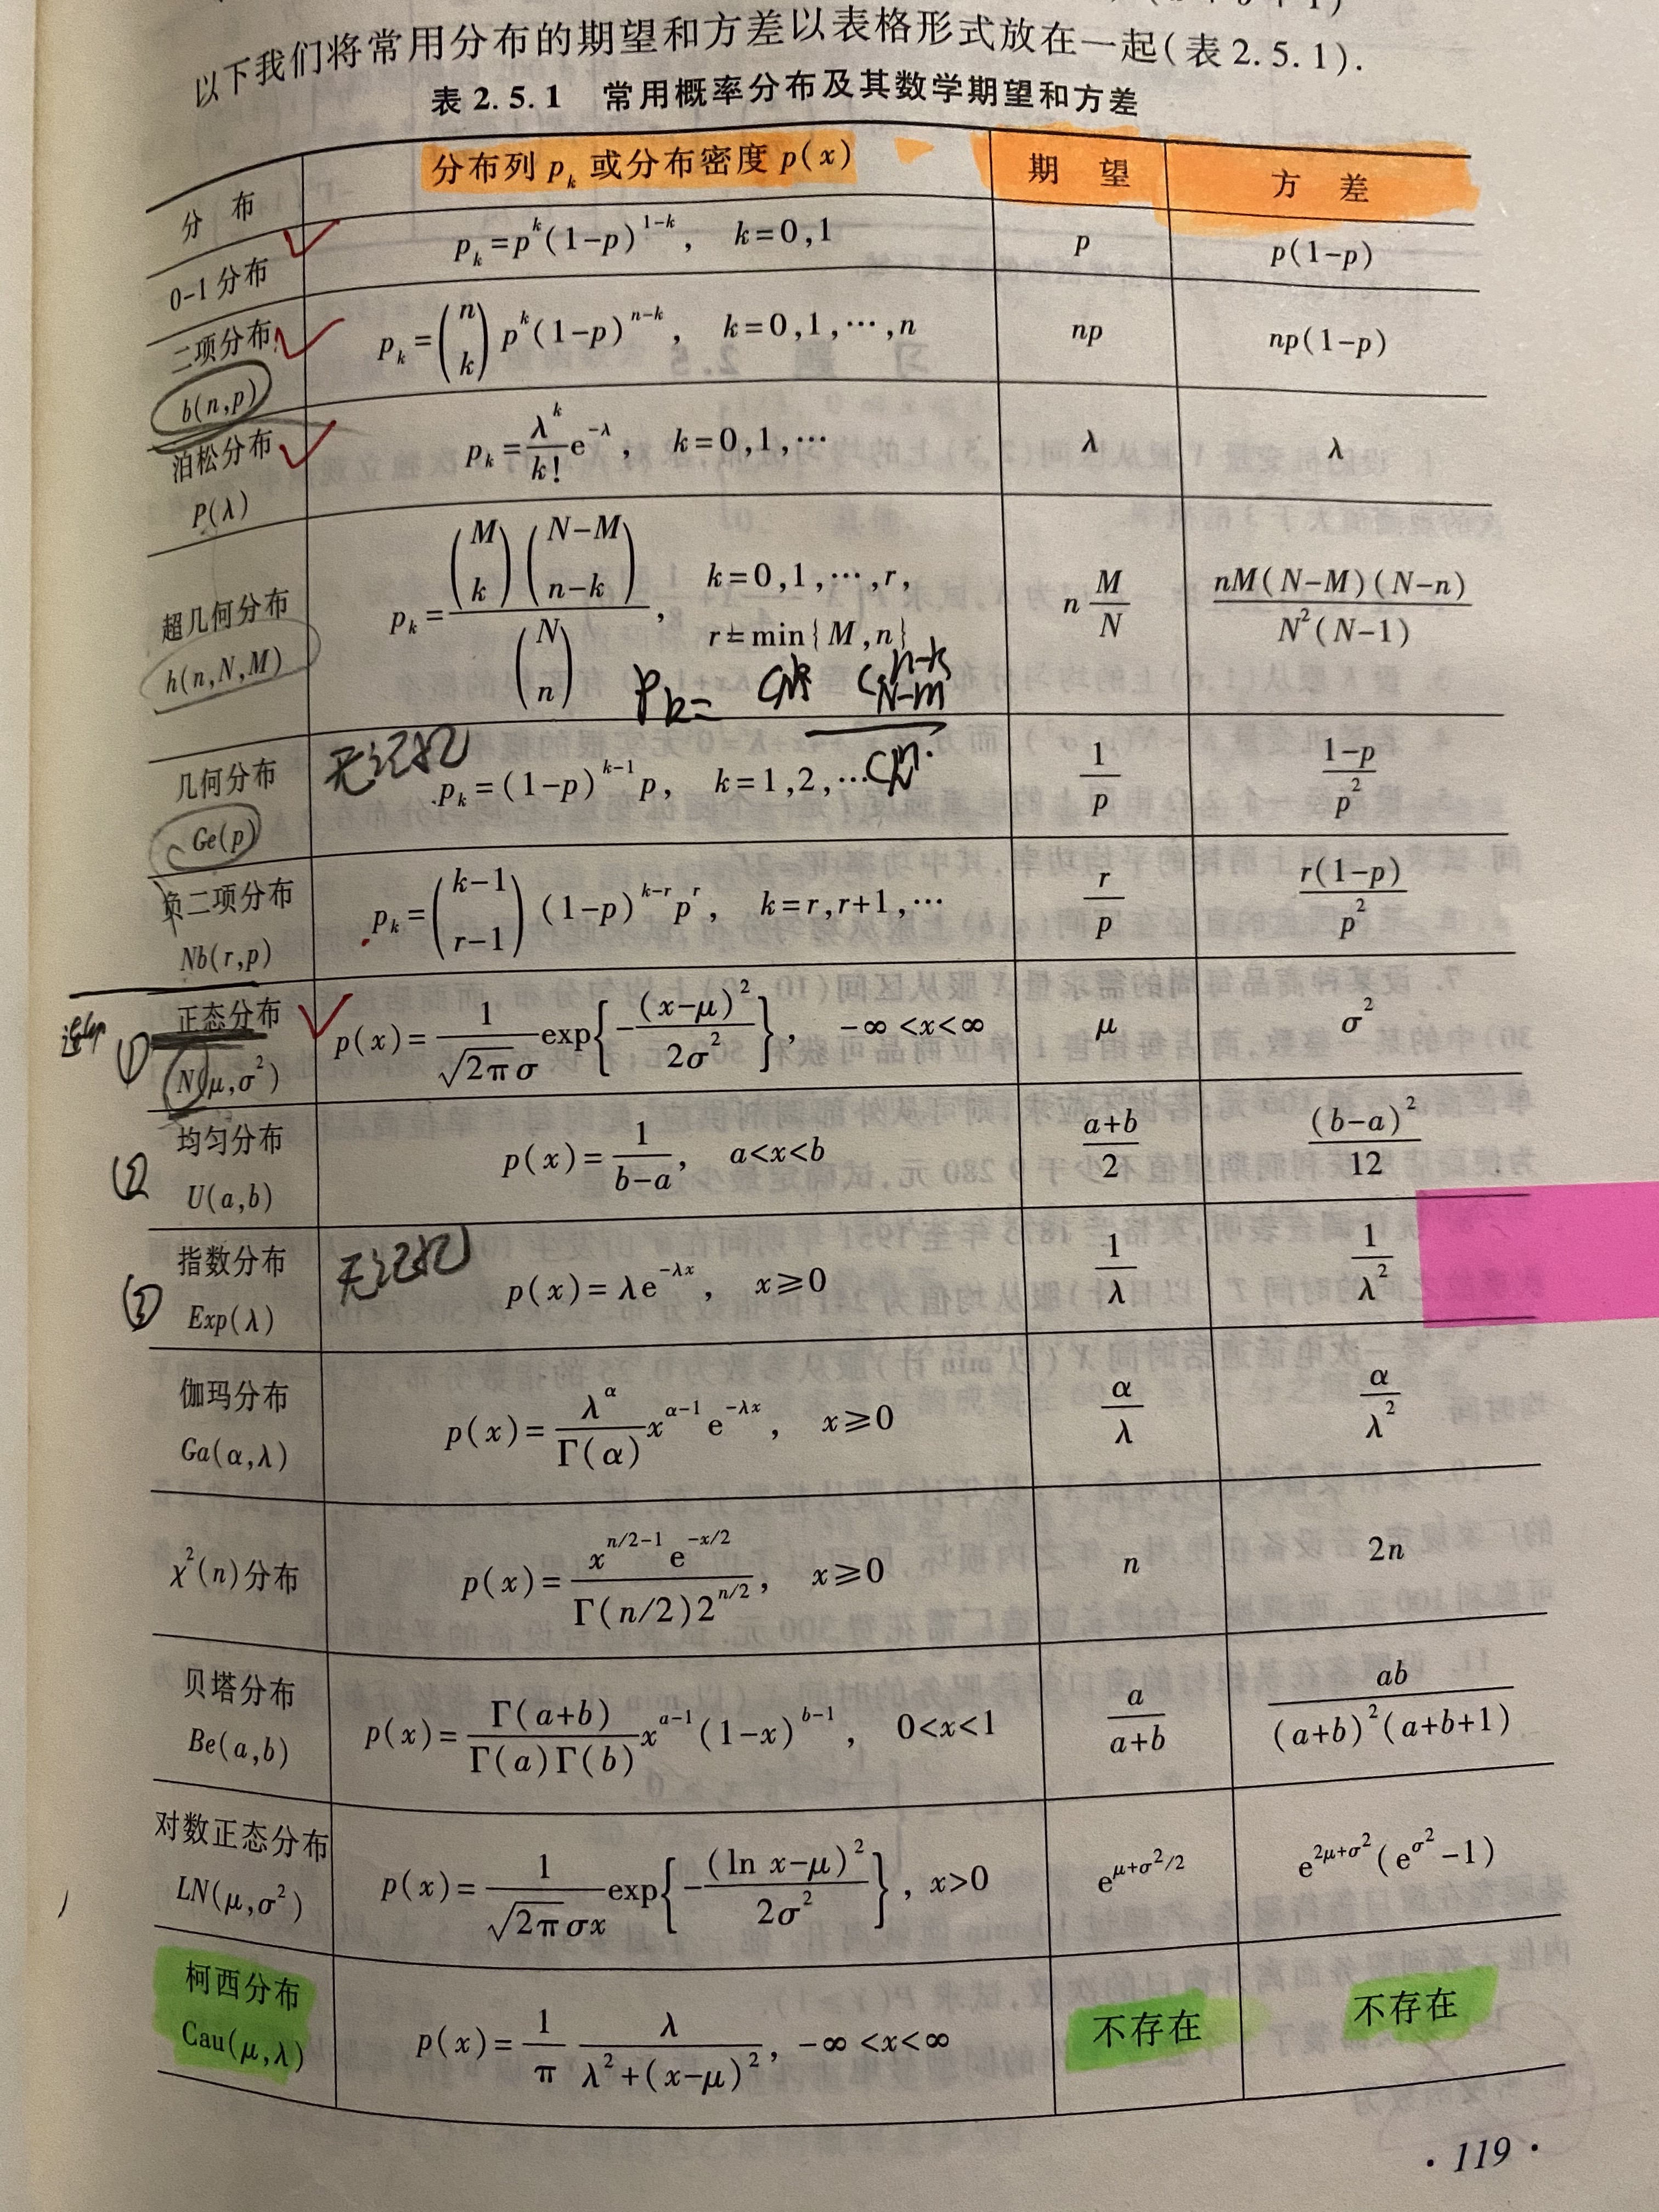 以下我们将常用分布的期望和方差以表格形式放在一起(表2.5.1).
表 2.5.1 常用概率分布及其数学期望和方差
分 布 分布列 p_k 或分布密度 p(x) 期 望 方 差
0-1分布 p_k=p^k(1-p)^{1-k}, k=0,1 p p(1-p)
二项分布 b(n,p) p_k=\binom{n}{k}p^k(1-p)^{n-k}, k=0,1,⋯,n np np(1-p)
泊松分布 P(λ) p_k=\frac{λ^k}{k!}e^{-λ}, k=0,1,⋯ λ λ
超几何分布 h(n,N,M) p_k=\frac{\binom{M}{k}\binom{N-M}{n-k}}{\binom{N}{n}}, k=0,1,⋯,r, r=min{M,n} n\frac{M}{N} \frac{nM(N-M)(N-n)}{N^2(N-1)}
无记忆
几何分布 Ge(p) p_k=(1-p)^{k-1}p, k=1,2,⋯ \frac{1}{p} \frac{1-p}{p^2}
负二项分布 Nb(r,p) p_k=\binom{k-1}{r-1}(1-p)^{k-r}p^r, k=r,r+1,⋯ \frac{r}{p} \frac{r(1-p)}{p^2}
① 正态分布 N(μ,σ^2) p(x)=\frac{1}{\sqrt{2π}σ}exp{-\frac{(x-μ)^2}{2σ^2}}, -∞<x<∞ μ σ^2
② 均匀分布 U(a,b) p(x)=\frac{1}{b-a}, a<x<b \frac{a+b}{2} \frac{(b-a)^2}{12}
无记忆
③ 指数分布 Exp(λ) p(x)=λe^{-λx}, x≥0 \frac{1}{λ} \frac{1}{λ^2}
伽玛分布 Ga(α,λ) p(x)=\frac{λ^α}{Γ(α)}x^{α-1}e^{-λx}, x≥0 \frac{α}{λ} \frac{α}{λ^2}
χ^2(n)分布 p(x)=\frac{x^{n/2-1}e^{-x/2}}{Γ(n/2)2^{n/2}}, x≥0 n 2n
贝塔分布 Be(a,b) p(x)=\frac{Γ(a+b)}{Γ(a)Γ(b)}x^{a-1}(1-x)^{b-1}, 0<x<1 \frac{a}{a+b} \frac{ab}{(a+b)^2(a+b+1)}
对数正态分布 LN(μ,σ^2) p(x)=\frac{1}{\sqrt{2π}σx}exp{-\frac{(ln x-μ)^2}{2σ^2}}, x>0 e^{μ+σ^2/2} e^{2μ+σ^2}(e^{σ^2}-1)
柯西分布 Cau(μ,λ) p(x)=\frac{1}{π}\frac{λ}{λ^2+(x-μ)^2}, -∞<x<∞ 不存在 不存在
· 119 ·